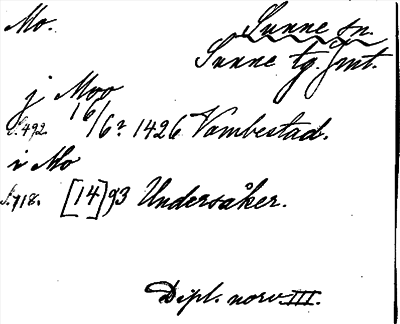 Mo.
Sunne sn.
Sunne tg. Jmt.
j Moo
s. 492. 16/6 1426 Vambestad.
i Mo
s. 718. [14]93 Undersåker.
Dipl. norv. III.